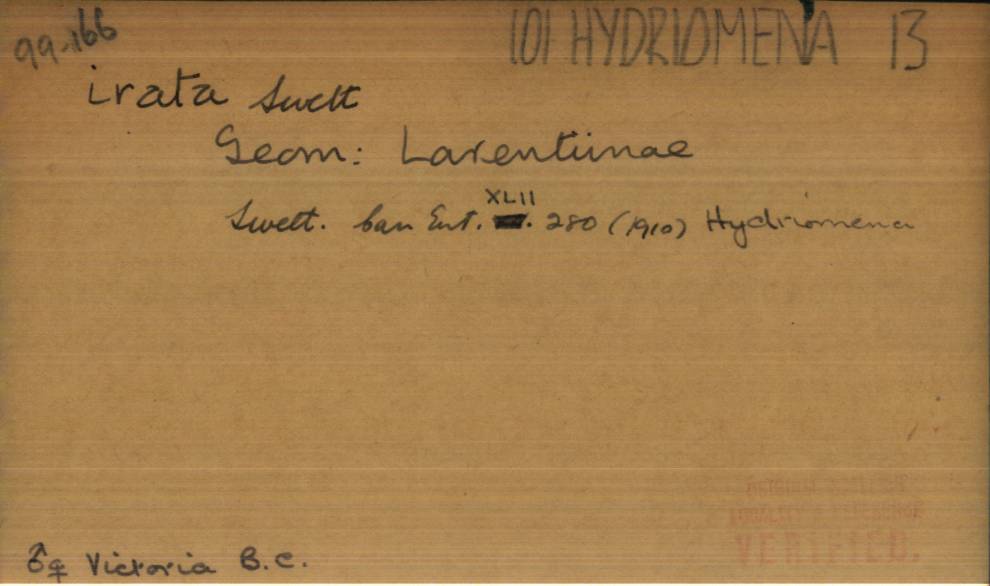 99-166
101 HYDRIOMENA 13
irata Swett
Geom: Larentiinae
XLII
Swett. Can Ent. . 280 (1910) Hydriomena
VERIFIED.
♂♀ Victoria B.C.